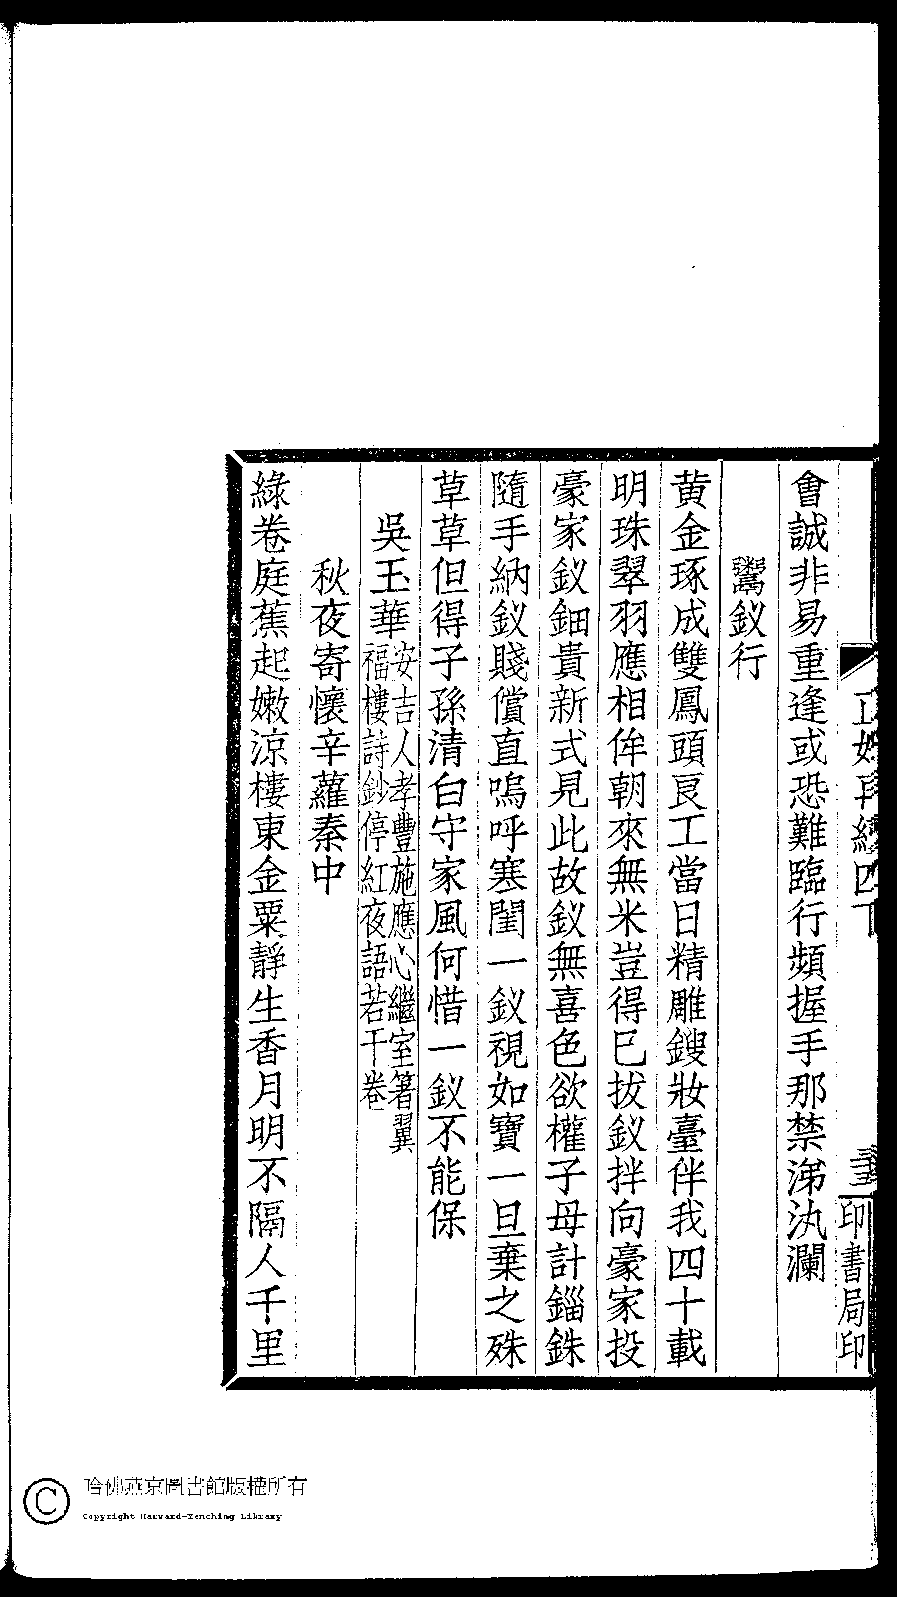 會誠非易重逢或恐難臨行頻握手那禁涕汍瀾
鬻釵行
黃金琢成雙鳳頭良工當日精雕鎪妝臺伴我四十載
明珠翠羽應相侔朝來無米豈得已拔釵拌向豪家投
豪家釵鈿貴新式見此故釵無喜色欲權子母計錙銖
隨手納釵賤償直嗚呼寒閨一釵視如寶一旦棄之殊
草草但得子孫清白守家風何惜一釵不能保
吳玉華安吉人孝豐施應心繼室箸翼
福樓詩鈔停紅夜語若干卷
秋夜寄懷辛蘿秦中
綠卷庭蕉起嫩涼樓東金粟靜生香月明不隔人千里
正始再續四下
三五
印書局印
哈佛燕京圖書館版權所有
Copyright Harvard-Yenching Library